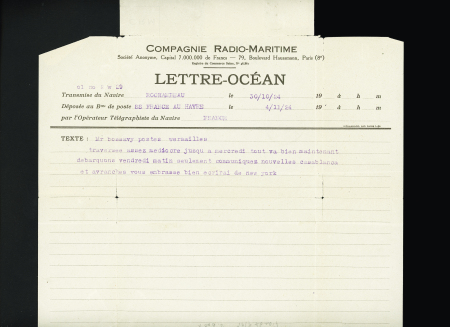 COMPAGNIE RADIO-MARITIME
Société Anonyme, Capital 7.000.000 de Francs — 79, Boulevard Haussmann, Paris (8e)
LETTRE-OCÉAN
Transmise du Navire ROCHAMBEAU le 30/10/24 19 à h m
Déposée au Bau de poste LE FRANCE AU HAVRE le 4/11/24 19 à h m
par l'Opérateur Télégraphiste du Navire FRANCE
TEXTE : Mr postes versailles
traversee assez mediocre jusqu a mercredi tout va bien maintenant
debarquons vendredi matin seulement nouvelles casablanca
et avranches vous embrasse bien de new york